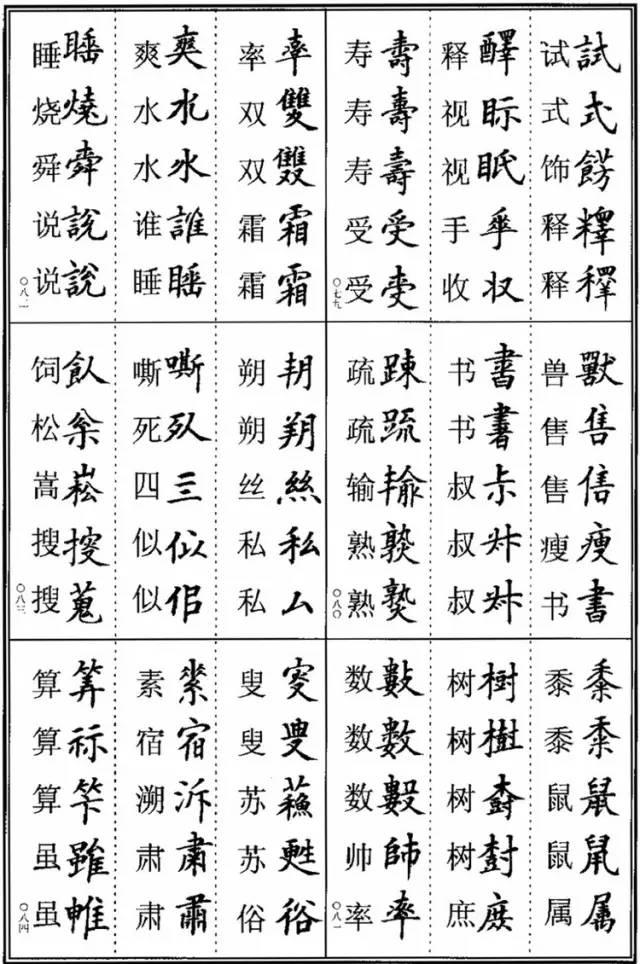 试試
式式
饰餝
释釋
释释
释醳
视眎
视眡
手
收収
寿壽
寿壽
寿壽
受受
受
〇七九
兽獸
售售
售
瘦瘦
书書
书書
书書
叔尗
叔
叔
疏踈
疏疏
输输
熟
熟
〇八〇
黍黍
黍黍
鼠鼠
鼠鼠
属属
树樹
树樹
树
树尌
庶庻
数數
数數
数
帅帥
率率
〇八一
率率
双雙
双
霜霜
霜霜
爽爽
水水
水水
谁誰
睡睡
睡睡
烧燒
舜舜
说說
说説
〇八二
朔
朔朔
丝絲
私私
私厶
嘶嘶
死
四亖
似似
似佀
饲飤
松枀
嵩崧
搜
搜蒐
〇八三
叟叜
叟叟
苏蘓
苏甦
俗俗
素
宿宿
溯泝
肃肅
肃肅
算筭
算祘
算笇
虽雖
虽
〇八四